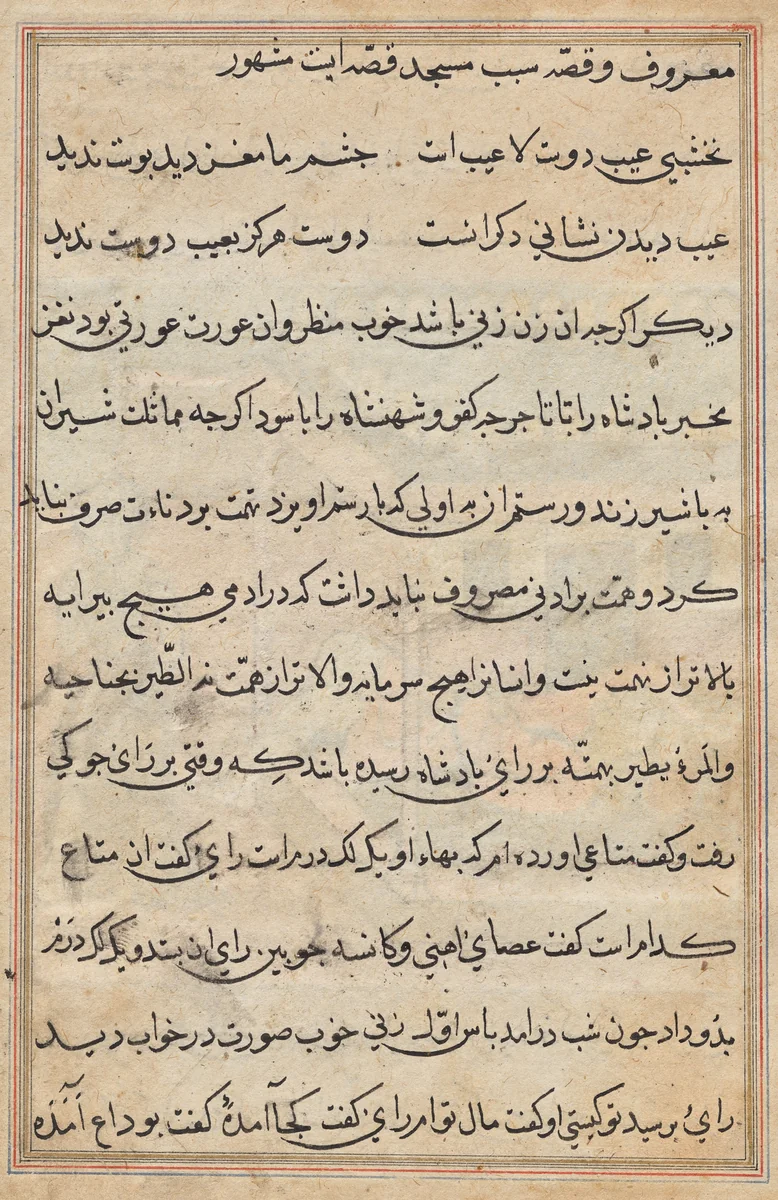 معروف و قصّه سبب مسجد قصّه ایست مشهور
نخشبی عیب دوست لا عیب است جشم ما مغز دید بوست ندید
عیب دیدن نشانی دکرانست دوست هرکز بعیب دوست ندید
دیکر اکرجه ان زن زنی باشد خوب منظر وان عورت عورتی بود نغز
مخبر بادشاه را با تاجر جه کفو و شهنشاه را با سودا کرجه مماثلت شیران
به با شیر زند و رستم ان به اولی که با رستم اویزد تهمت بر دناءت صرف نباید
کرد و همّت بر ادنی مصروف نباید داشت که در ادمی هیچ بیرایه
بالا تر از نهمت نیست و انسانرا هیچ سرمایه والا تر از همّت نه الطّیر بجناحیه
والمرءُ یطیر بهمتّه بر رایُ بادشاه رسیده باشد که وقتی بر رَایْ جوکی
رفت و کفت متاعی اورده ام که بهاء او یک لک درم است رایْ کفت ان متاع
کدام است کفت عصایْ اهنی و کانسه جوبین رای ان بستد و یک لک درَمْ
بدُو داد جون شب درامد باس اوّل زنی خوب صورت در خواب دید
رایُ برسید تو کیستی او کفت مال توام رایْ کفت کجا آمدهٔ کفت بوداع آمَدَه